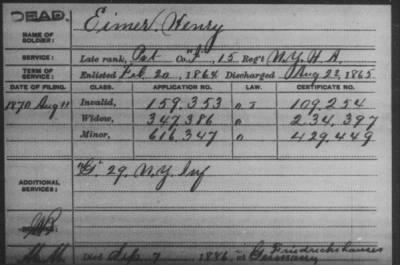 DEAD.
NAME OF SOLDIER: Eimer, Henry
SERVICE: Late rank, Pvt Co. "I", 15 Reg't N.Y. H. A.
TERM OF SERVICE: Enlisted Feb. 20, 1864 Discharged Aug 22, 1865
DATE OF FILING. CLASS. APPLICATION NO. LAW. CERTIFICATE NO.
1870 Aug 11 Invalid, 159.353 109,254
Widow, 347,386 234,397
Minor, 616,347 429,449
ADDITIONAL SERVICES: "G" 29. N.Y. Inf
Died Sep. 7 1886, at Friedrichshausen
Germany